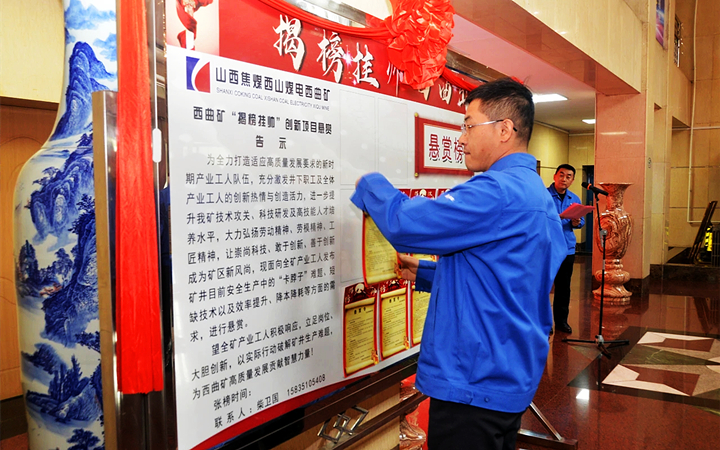 揭榜挂帅
山西焦煤西山煤电西曲矿
SHANXI COKING COAL XISHAN COAL ELECTRICITY XIQU MINE
西曲矿“揭榜挂帅”创新项目悬赏
告示
为全力打造适应高质量发展要求的新时
期产业工人队伍，充分激发井下职工及全体
产业工人的创新热情与创造活力，进一步提
升我矿技术攻关、科技研发及高技能人才培
养水平，大力弘扬劳动精神，劳模精神，工
匠精神，让崇尚科技，敢于创新，善于创新
成为矿区新风尚，现面向全矿产业工人发布
矿井目前安全生产中的“卡脖子”难题、短
缺技术以及效率提升、降本降耗等方面的需
求，进行悬赏。
望全矿产业工人积极响应，立足岗位、
大胆创新，以实际行动破解矿井生产难题，
为西曲矿高质量发展贡献智慧力量！
张榜时间：
联系人：柴卫国 15835105408
悬赏榜